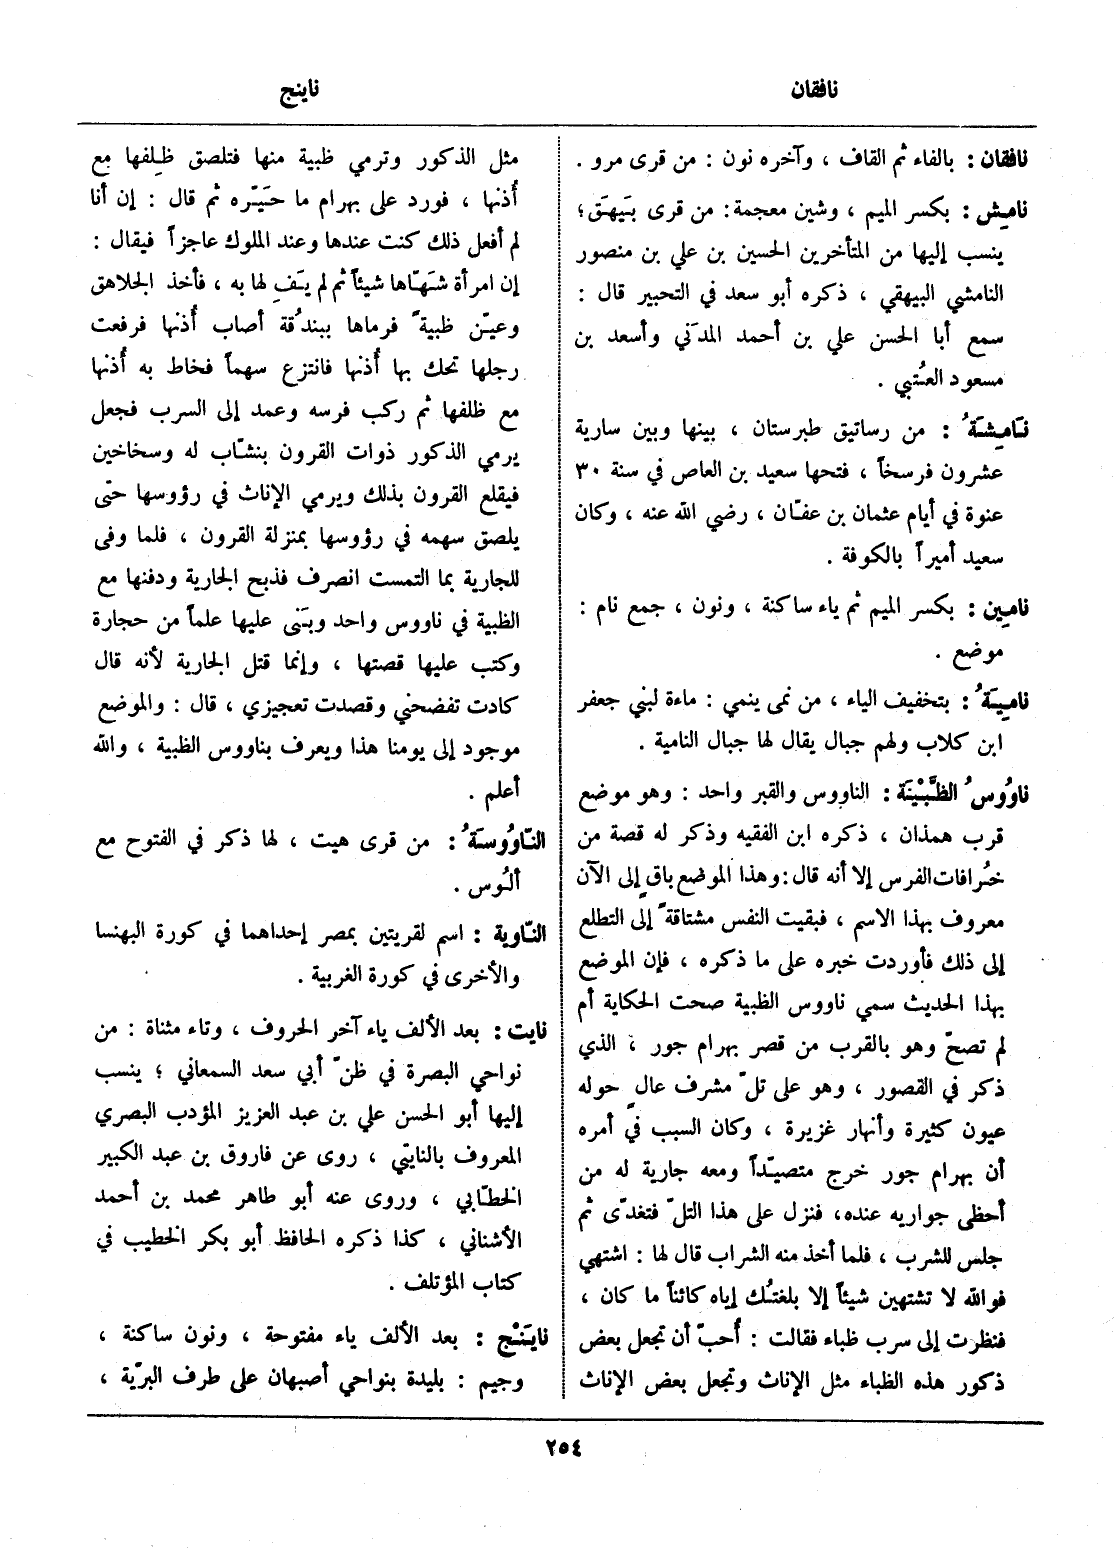 نافقان
ناينج
نافقان : بالفاء ثم القاف ، وآخره نون : من قرى مرو .
نامِش : بكسر الميم ، وشين معجمة : من قرى بَيهَق؛
ينسب إليها من المتأخرين الحسين بن علي بن منصور
النامشي البيهقي ، ذكره أبو سعد في التحبير قال :
سمع أبا الحسن علي بن أحمد المدَني وأسعد بن
مسعود العُتبي .
نَامِشَةُ : من رساتيق طبرستان ، بينها وبين سارية
عشرون فرسخاً ، فتحها سعيد بن العاص في سنة ٣٠
عنوة في أيام عثمان بن عفّان ، رضي الله عنه ، وكان
سعيد أميراً بالكوفة .
نامِين : بكسر الميم ثم ياء ساكنة ، ونون ، جمع نام :
موضع .
نامِيَةُ : بتخفيف الياء ، من نمى ينمي : ماءة لبني جعفر
ابن كلاب ولهم جبال يقال لها جبال النامية .
ناوُوسُ الظَّبْيَة : الناووس والقبر واحد : وهو موضع
قرب همذان ، ذكره ابن الفقيه وذكر له قصة من
خُرافات الفرس إلا أنه قال : وهذا الموضع باقٍ إلى الآن
معروف بهذا الاسم ، فبقيت النفس مشتاقةً إلى التطلع
إلى ذلك فأوردت خبره على ما ذكره ، فإن الموضع
بهذا الحديث سمي ناووس الظبية صحت الحكاية أم
لم تصحّ وهو بالقرب من قصر بهرام جور ، الذي
ذكر في القصور ، وهو على تلّ مشرف عالٍ حوله
عيون كثيرة وأنهار غزيرة ، وكان السبب في أمره
أن بهرام جور خرج متصيّداً ومعه جارية له من
أحظى جواريه عنده، فنزل على هذا التلّ فتغدّى ثم
جلس للشرب ، فلما أخذ منه الشراب قال لها : اشتهي
فوالله لا تشتهين شيئاً إلا بلغتُك إياه كائناً ما كان ،
فنظرت إلى سرب ظباء فقالت : أُحبّ أن تجعل بعض
ذكور هذه الظباء مثل الإناث وتجعل بعض الإناث
مثل الذكور وترمي ظبية منها فتلصق ظِلفها مع
أُذنها ، فورد على بهرام ما حَيّره ثم قال : إن أنا
لم أفعل ذلك كنت عندها وعند الملوك عاجزاً فيقال :
إن امرأة شَهّاها شيئاً ثم لم يَفِ لها به ، فأخذ الجلاهق
وعيّن ظبيةً فرماها ببندُقة أصاب أُذنها فرفعت
رجلها تحك بها أُذنها فانتزع سهماً فخاط به أُذنها
مع ظلفها ثم ركب فرسه وعمد إلى السرب فجعل
يرمي الذكور ذوات القرون بنشّاب له وسخاخين
فيقلع القرون بذلك ويرمي الإناث في رؤوسها حتى
يلصق سهمه في رؤوسها بمنزلة القرون ، فلما وفى
للجارية بما التمست انصرف فذبح الجارية ودفنها مع
الظبية في ناووس واحد وبَنى عليها علماً من حجارة
وكتب عليها قصتها ، وإنما قتل الجارية لأنه قال
كادت تفضحني وقصدت تعجيزي ، قال : والموضع
موجود إلى يومنا هذا ويعرف بناووس الظبية ، والله
أعلم .
النّاوُوسَةُ : من قرى هيت ، لها ذكر في الفتوح مع
ألُوس .
النّاوية : اسم لقريتين بمصر إحداهما في كورة البهنسا
والأخرى في كورة الغربية .
نايت : بعد الألف ياء آخر الحروف ، وتاء مثناة : من
نواحي البصرة في ظنّ أبي سعد السمعاني ؛ ينسب
إليها أبو الحسن علي بن عبد العزيز المؤدب البصري
المعروف بالنايتي ، روى عن فاروق بن عبد الكبير
الخطّابي ، وروى عنه أبو طاهر محمد بن أحمد
الأشناني ، كذا ذكره الحافظ أبو بكر الخطيب في
كتاب المؤتلف .
نايَنْج : بعد الألف ياء مفتوحة ، ونون ساكنة ،
وجيم : بليدة بنواحي أصبهان على طرف البرّية ،
٢٥٤